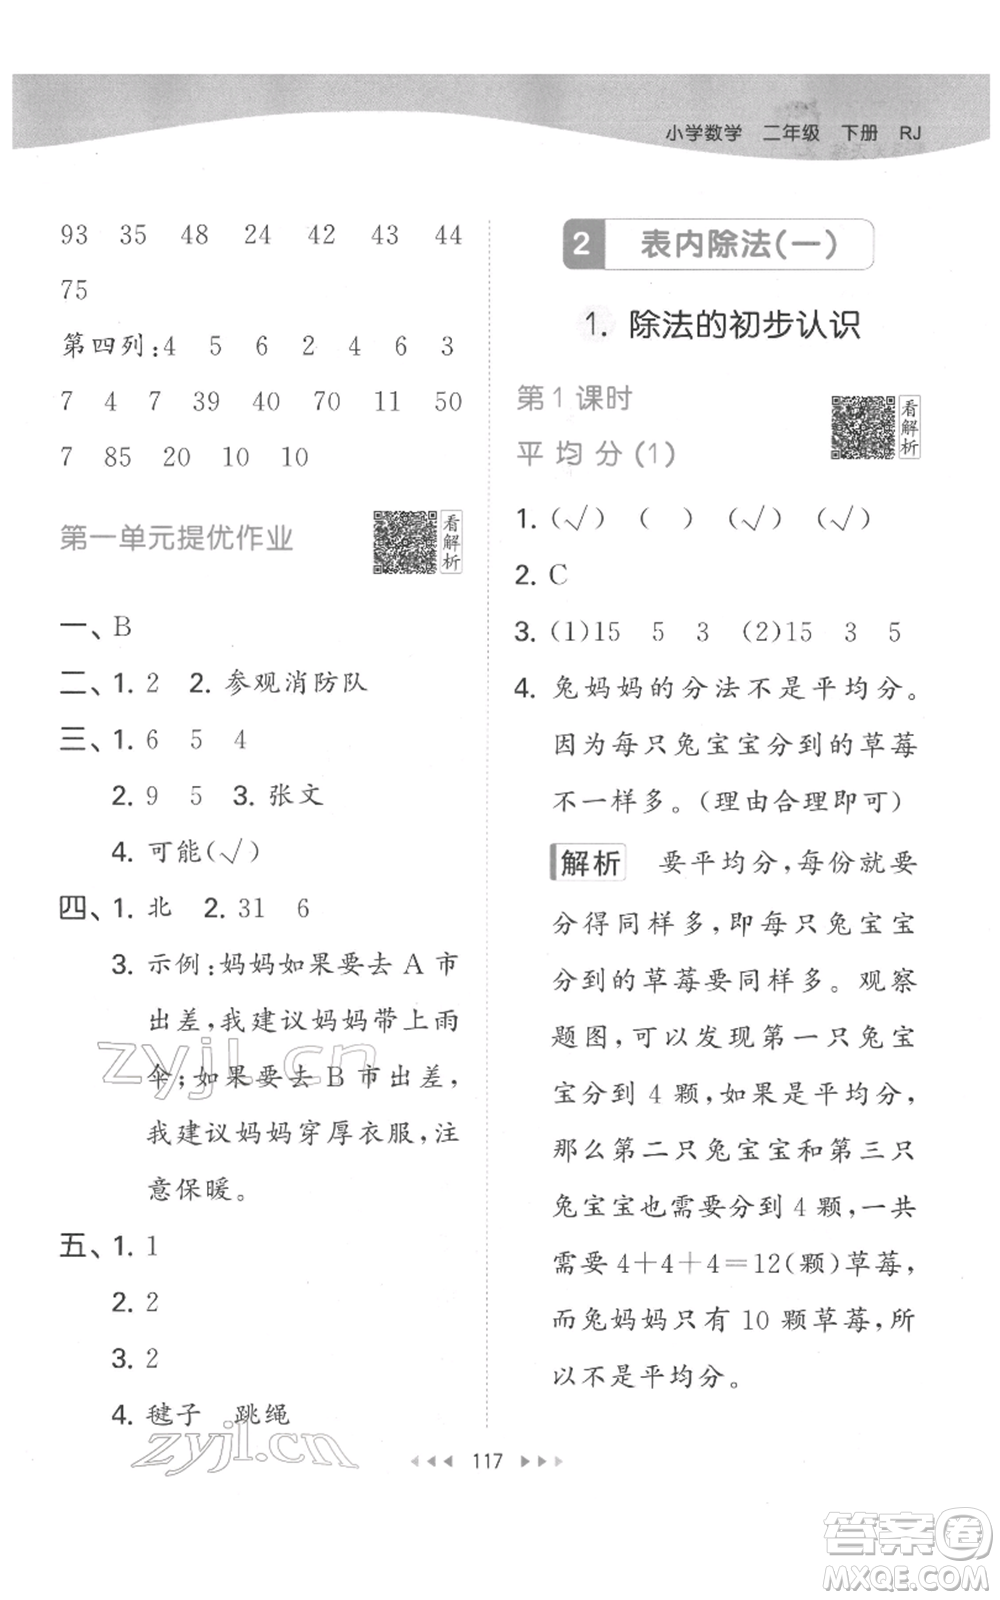 小学数学 二年级 下册 RJ
93 35 48 24 42 43 44
75
第四列:4 5 6 2 4 6 3
7 4 7 39 40 70 11 50
7 85 20 10 10
第一单元提优作业
看解析
一、B
二、1. 2 2. 参观消防队
三、1. 6 5 4
2. 9 5 3. 张文
4. 可能(√)
四、1. 北 2. 31 6
3. 示例:妈妈如果要去 A 市
出差,我建议妈妈带上雨
伞;如果要去 B 市出差,
我建议妈妈穿厚衣服,注
意保暖。
五、1. 1
2. 2
3. 2
4. 毽子 跳绳
2 表内除法(一)
1. 除法的初步认识
第 1 课时
平均分(1)
看解析
1. (√) ( ) (√) (√)
2. C
3. (1)15 5 3 (2)15 3 5
4. 兔妈妈的分法不是平均分。
因为每只兔宝宝分到的草莓
不一样多。(理由合理即可)
解析 要平均分,每份就要
分得同样多,即每只兔宝宝
分到的草莓要同样多。观察
题图,可以发现第一只兔宝
宝分到 4 颗,如果是平均分,
那么第二只兔宝宝和第三只
兔宝宝也需要分到 4 颗,一共
需要 4+4+4=12(颗)草莓,
而兔妈妈只有 10 颗草莓,所
以不是平均分。
117
zyjl.cn
zyjl.cn
答案卷
MXQE.COM